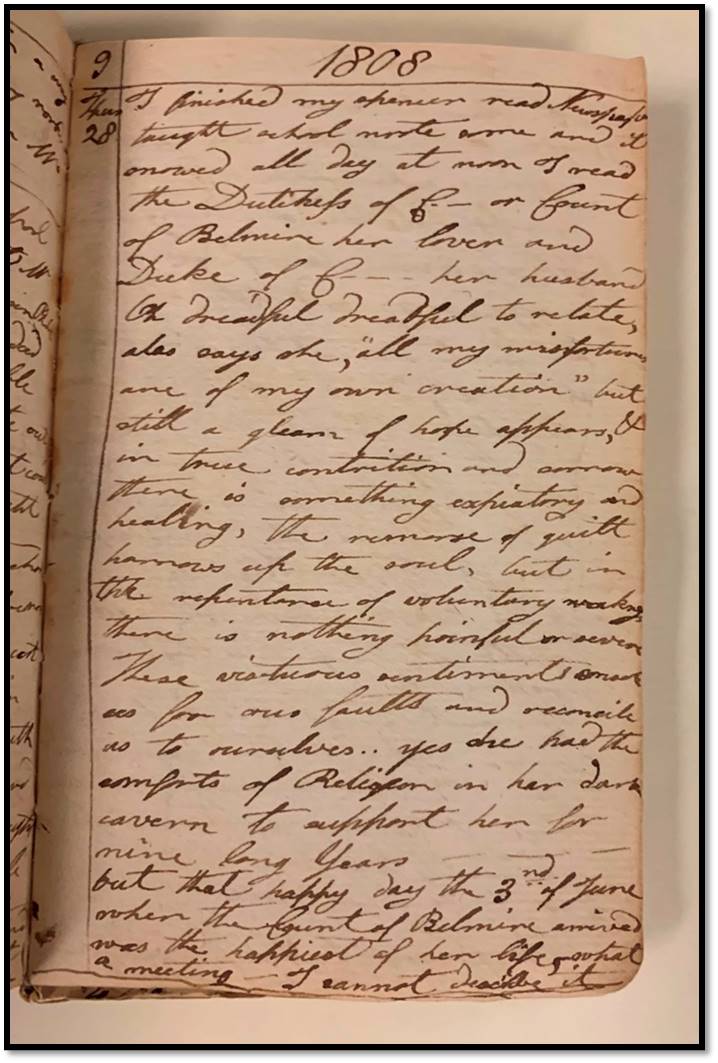 9 1808
Thurs I finished my spencer read Newspaper
28 taught school wrote some and it
snowed all day at noon I read
the Dutchess of C— or Count
of Belmire her lover and
Duke of C—— her husband
Oh dreadful dreadful to relate,
alas says she, "all my misfortunes
are of my own creation" but
still a gleam of hope appears, &
in true contrition and sorrow
there is something expiatory and
healing, the remorse of guilt
harrows up the soul, but in
the repentance of voluntary weakness
there is nothing painful or severe
These virtuous sentiments
us for our faults and reconcile
us to ourselves.. yes she had the
comforts of Religion in her dark
cavern to support her for
nine long Years —— —
but that happy day the 3nd of June
when the Count of Belmire arrived
was the happiest of her life, what
a meeting — I cannot describe it